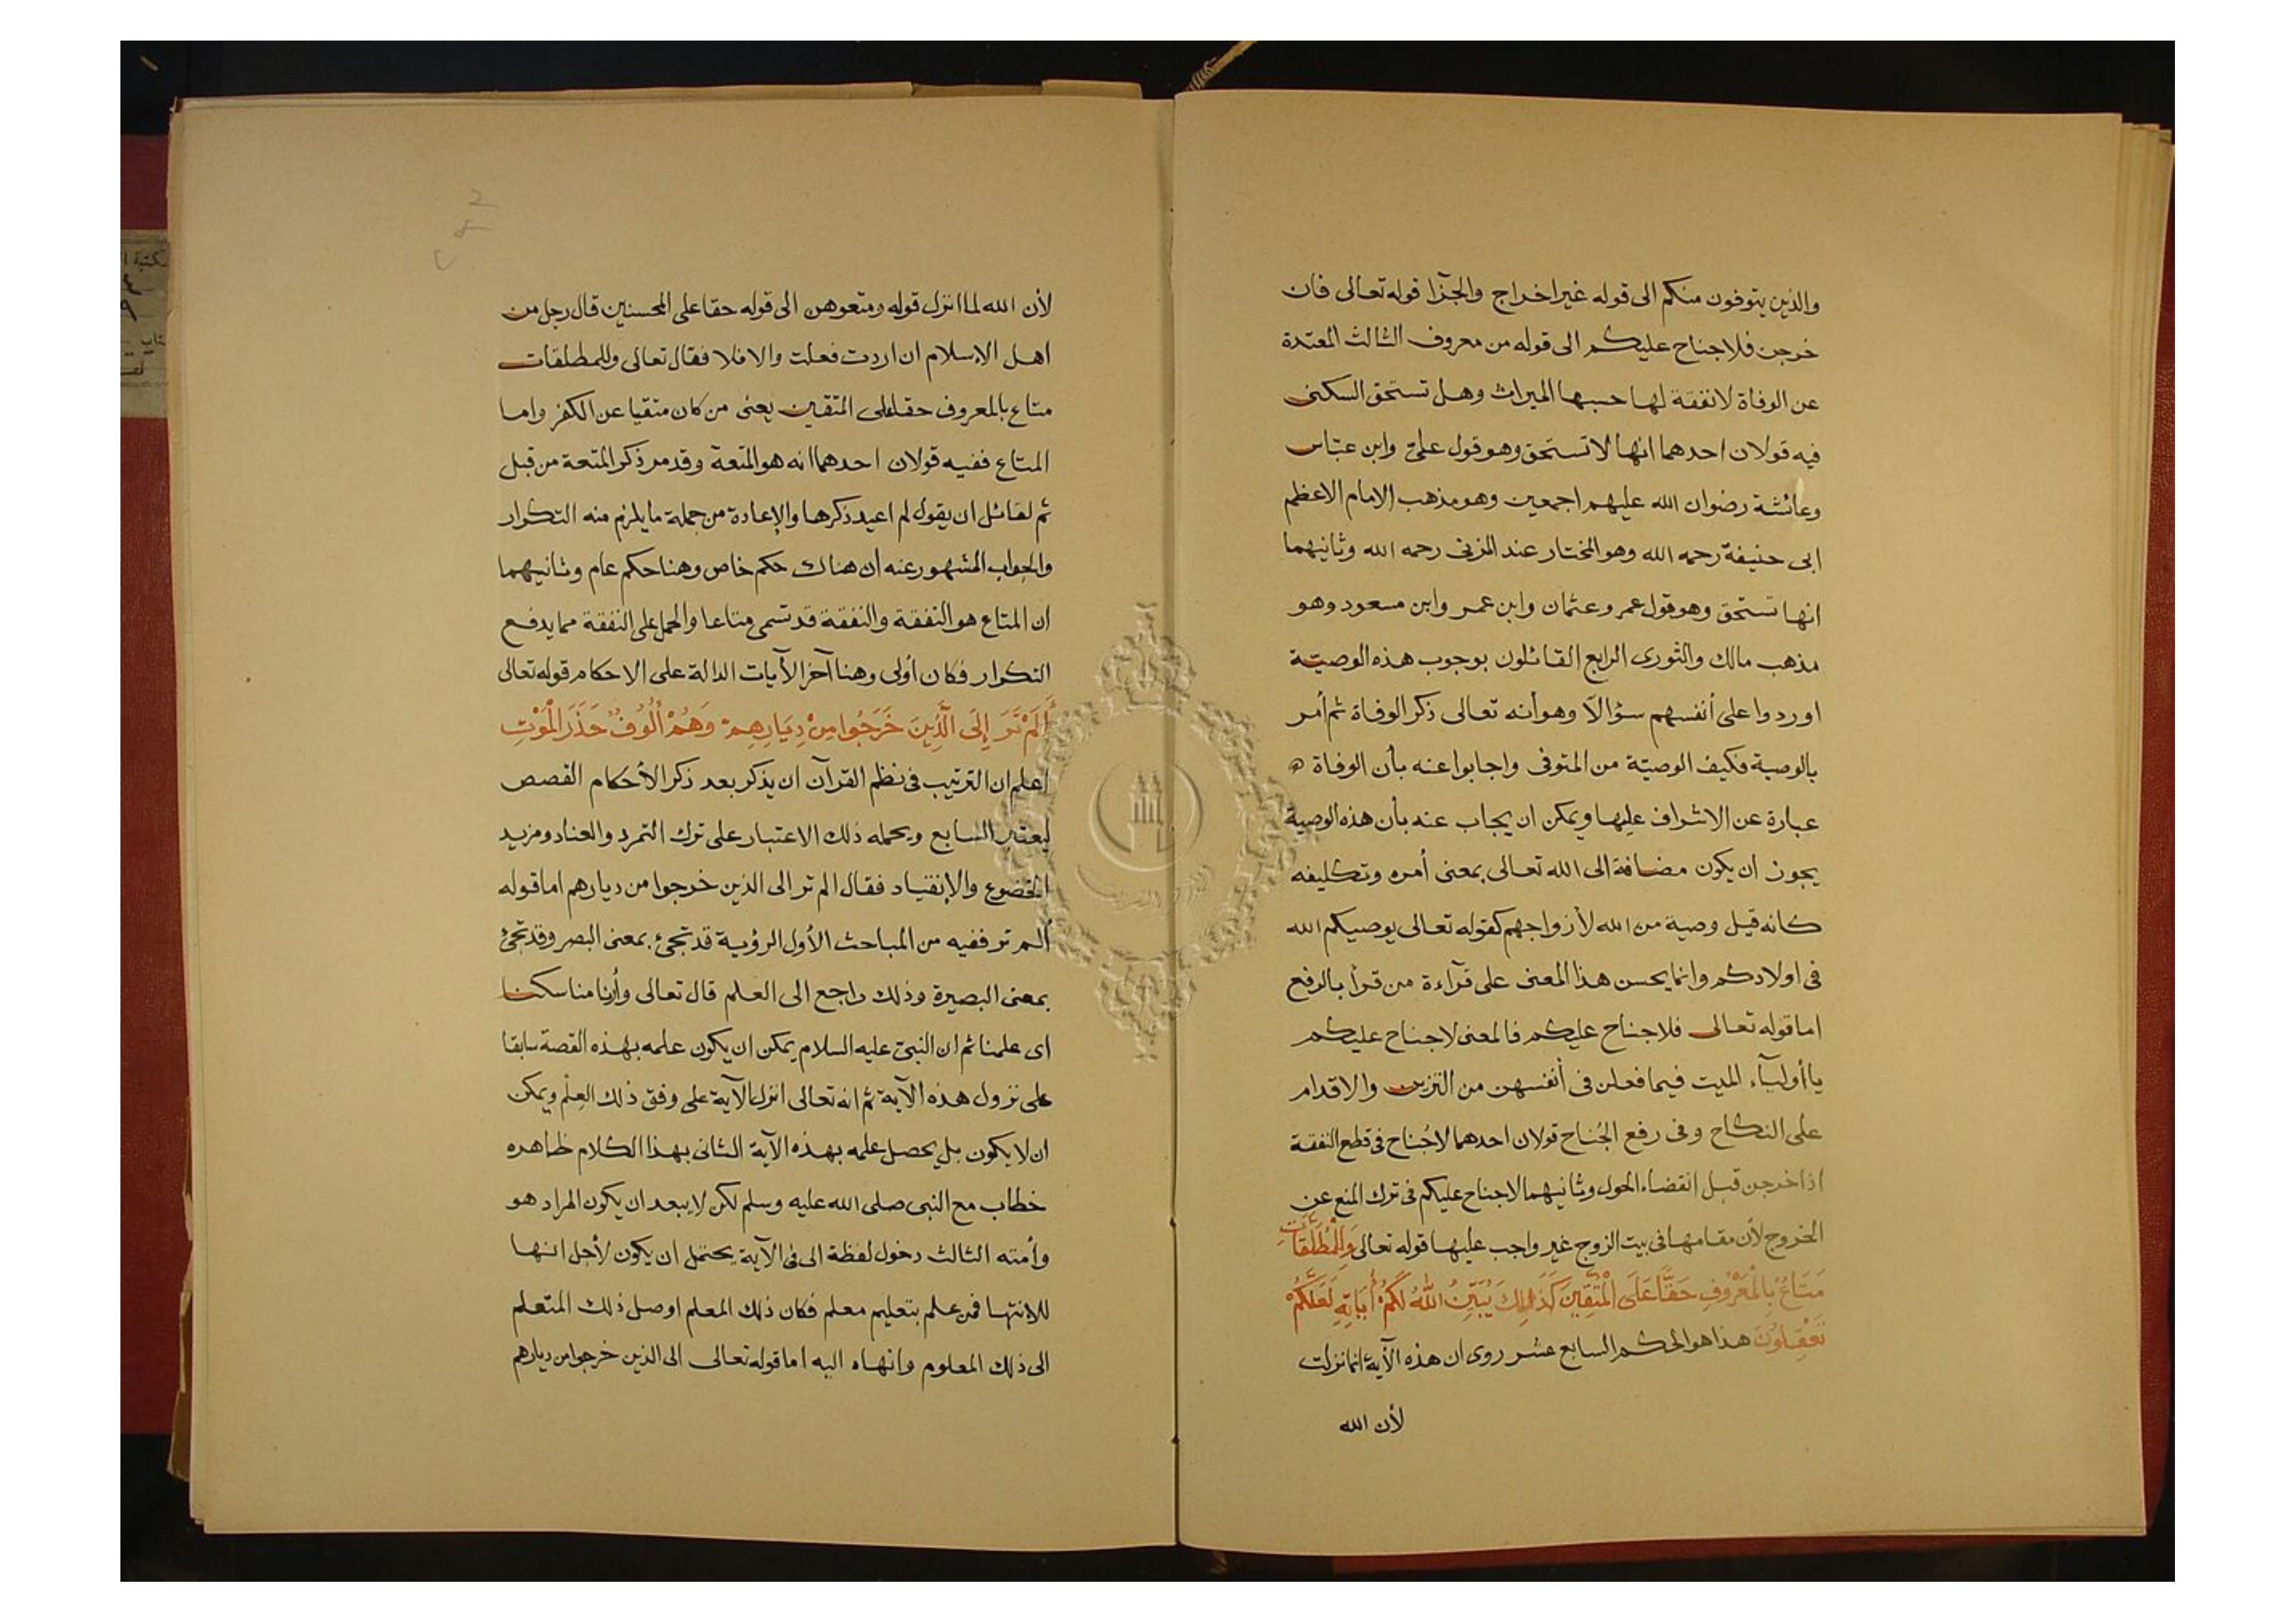 والذين يتوفون منكم الى قوله غير اخراج والجزآ قوله تعالى فان
خرجن فلا جناح عليكم الى قوله من معروف الثالث المعتدة
عن الوفاة لا نفقة لها حسبها الميراث وهل تستحق السكنى
فيه قولان احدهما انها لا تستحق وهو قول علىّ وابن عبّاس
وعائشة رضوان الله عليهم اجمعين وهو مذهب الامام الاعظم
ابى حنيفة رحمه الله وهو المختار عند المزنى رحمه الله وثانيهما
انها تستحق وهو قول عمر وعثمان وابن عمر وابن مسعود وهو
مذهب مالك والثورى الرابع القائلون بوجوب هذه الوصيّة
اوردوا على أنفسهم سؤالاً وهو أنه تعالى ذكر الوفاة ثم أمر
بالوصية فكيف الوصيّة من المتوفى واجابوا عنه بأن الوفاة
عبارة عن الاشراف عليها ويمكن ان يجاب عنه بأن هذه الوصية
يجوز ان يكون مضافة الى الله تعالى بمعنى أمره وتكليفه
كانه قيل وصية من الله لأزواجهم كقوله تعالى يوصيكم الله
فى اولادكم وانما يحسن هذا المعنى على قرآءة من قرأ بالرفع
اما قوله تعالى فلا جناح عليكم فالمعنى لا جناح عليكم
يا أوليآء الميت فيما فعلن فى أنفسهن من التزين والاقدام
على النكاح وفى رفع الجُناح قولان احدهما لا جُناح فى قطع النفقة
اذا خرجن قبل انقضاء الحول وثانيهما لا جناح عليكم فى ترك المنع عن
الخروج لأن مقامها فى بيت الزوج غير واجب عليها قوله تعالى وَلِلْمُطَلَّقَاتِ
مَتَاعٌ بِالْمَعْرُوفِ حَقًّا عَلَى الْمُتَّقِينَ كَذَلِكَ يُبَيِّنُ اللهُ لَكُمْ أَيَاتِهِ لَعَلَّكُمْ
تَعْقِلُونَ هذا هو الحكم السابع عشر روى ان هذه الآية انما نزلت
لأن الله
لأن الله لما انزل قوله ومتعوهن الى قوله حقا على المحسنين قال رجل من
اهل الإسلام ان اردت فعلت والا فلا فقال تعالى وللمطلقات
متاع بالمعروف حقا على المتقين يعنى من كان متقيا عن الكفر واما
المتاع ففيه قولان احدهما انه هو المتعة وقد مر ذكر المتعة من قبل
ثم لقائل ان يقول لم اعيد ذكرها والإعادة من جملة ما يلزم منه التكرار
والجواب المشهور عنه أن هناك حكم خاص وهنا حكم عام وثانيهما
ان المتاع هو النفقة والنفقة قد تسمى متاعا والحمل على النفقة مما يدفع
التكرار فكان أولى وهنا آخر الأيات الدالة على الاحكام قوله تعالى
أَلَمْ تَرَ إِلَى الَّذِينَ خَرَجُوا مِنْ دِيَارِهِمْ وَهُمْ أُلُوفٌ حَذَرَ الْمَوْتِ
اعلم ان الترتيب فى نظم القرآن ان يذكر بعد ذكر الأحكام القصص
ليعتبر السابع ويحمله ذلك الاعتبار على ترك التمرد والعناد ومزيد
الخضوع والإنقياد فقال الم تر الى الذين خرجوا من ديارهم اما قوله
ألم تر ففيه من المباحث الأول الرؤية قد تجىء بمعنى البصر وقد تجىء
بمعنى البصيرة وذلك راجع الى العلم قال تعالى وأرنا مناسكنا
اى علمنا ثم ان النبىّ عليه السلام يمكن ان يكون علمه بهذه القصة سابقا
على نزول هذه الآية ثم انه تعالى انزل الآية على وفق ذلك العِلْم ويمكن
ان لا يكون بل يحصل علمه بهذه الآية الثانى بهذا الكلام ظاهره
خطاب مع النبى صلى الله عليه وسلم لكن لا يبعد ان يكون المراد هو
وأمته الثالث دخول لفظة الى فى الآية يحتمل ان يكون لأجل انها
للانتها فمن علم بتعليم معلم فكان ذلك المعلم اوصل ذلك المتعلم
الى ذلك المعلوم وانهاه اليه اما قوله تعالى الى الذين خرجوا من ديارهم